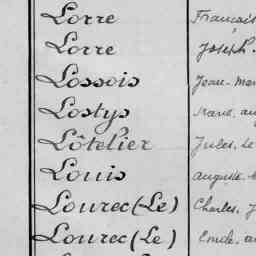 Lorre Françai
Lorre Joseph.
Lossois Jean-Mar
Lostys
Lôtelier Jules, Le
Louis auguste
Lourec (Le) Charles, J
Lourec (Le) Emile, a